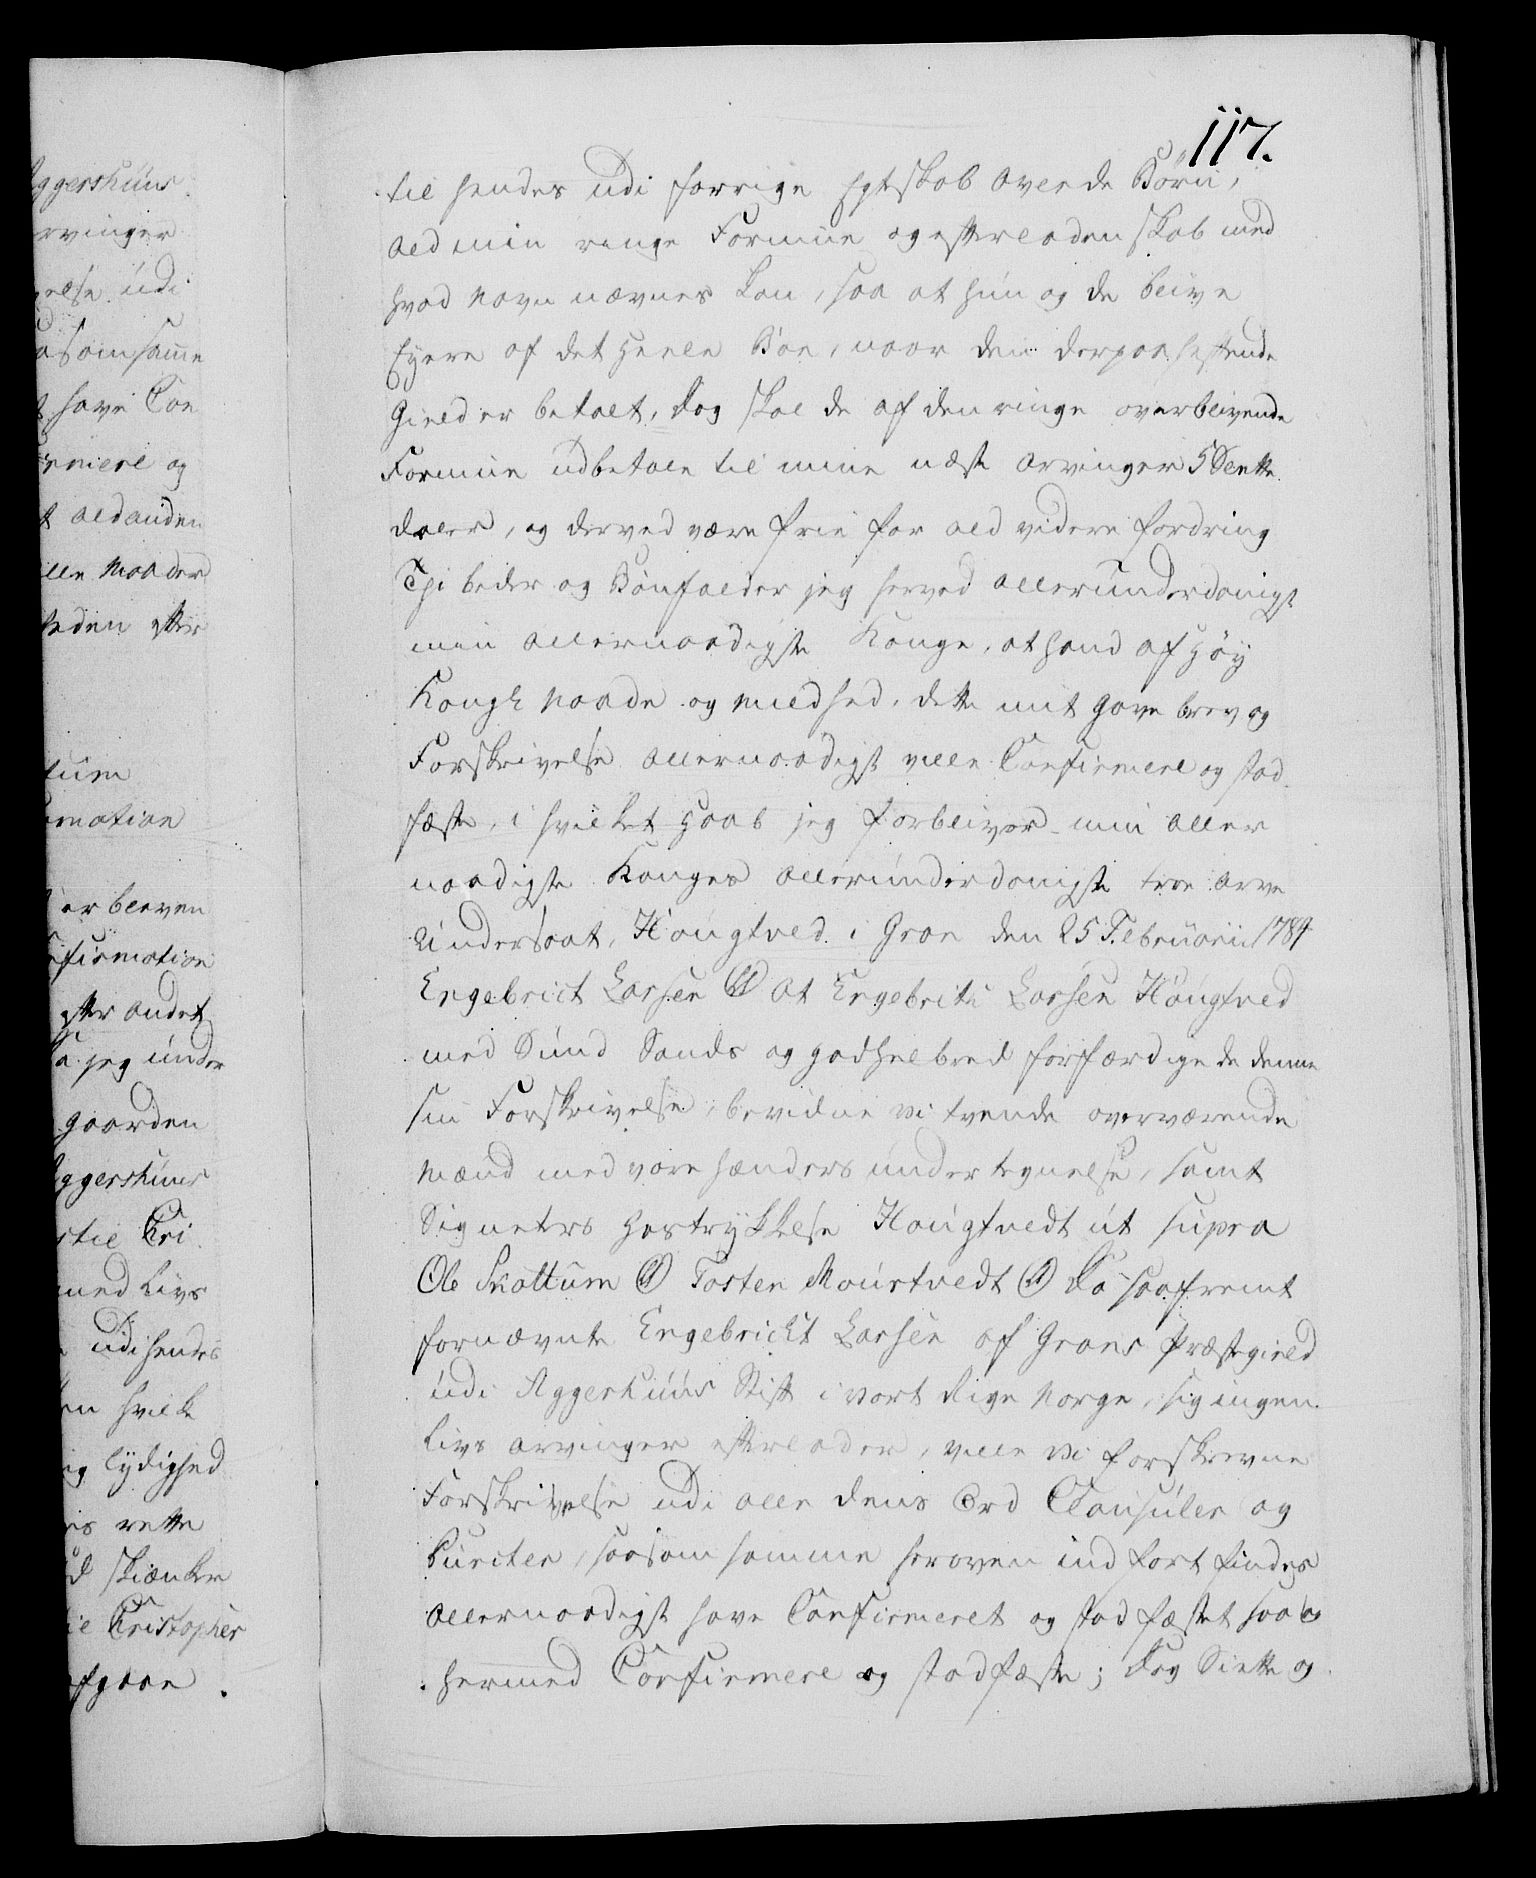 117.
til hendes udi forrige Egteskab avlede Børn,
ald min ringe Formue og efterladenskab med
hvad Navn nævnes kan, saa at hun og de blive
Eyere af det heele Boe, naar den derpaa heftende
Gield er betalt, dog skal de af den ringe overblivende
Formue udbetale til mine næste Arvinger 5 Slette
daler, og derved være frie for ald videre fordring
Thi beder og Bønfalder jeg herved allerunderdanigst
min allernaadigste Konge, at hand af høy
Kongl. Naade og mildhed, dette mit Gave brev og
Forskrivelse allernaadigst ville Confirmere og stad
fæste, i hvilket Haab jeg forbliver min aller
naadigste Konges allerunderdanigste troe Arve
Undersaat, Haugtved i Gran den 25 Februarii 1784
Engebrict Larsen (LS) At Engebrict Larsen Haugtved
med Sund Sands og god helbred forfærdigede denne
sin Forskrivelse, bevidne vi tvende overværende
Mænd med vore hænders undertegnelse, samt
Signeters hostrykkelse Haugtvedt ut supra
Ole Skattum (LS) Tosten Mourtvedt (LS) Da saafremt
fornævnte Engebricht Larsen af Grans Præstegield
udi Aggershuus Stift i vort Rige Norge, sig ingen
Livs Arvinger efterlader, ville vi forskrevne
Forskrivelse udi alle dens Ord Clausuler og
Puncter, saasom samme heroven indført findes
allernaadigst have Confirmeret og stadfæstet saa og
hermed Confirmere og stadfæste; Dog Slette og
Aggershuus
rvinger
else udi
asom samme
have Con
irmere og
t aldanden
lle Maader
teden efter
tum
mation
er bleven
firmation
efter andet
a jeg under
gaarden
Aggershuus
til Kri
med Livs
udi hendes
en hvilke
ig lydighed
is rette
d skienker
ie Cristopher
afgaae